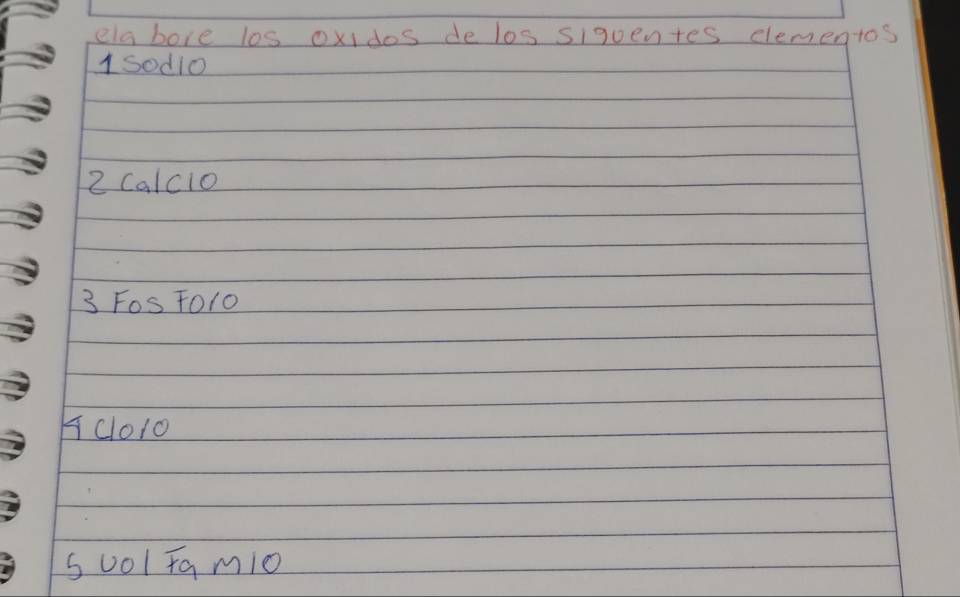 elabore los oxidos de los siguentes elementos
1 Sodio
2 Calcio
3 FosForo
4 Cloro
5 volFamio